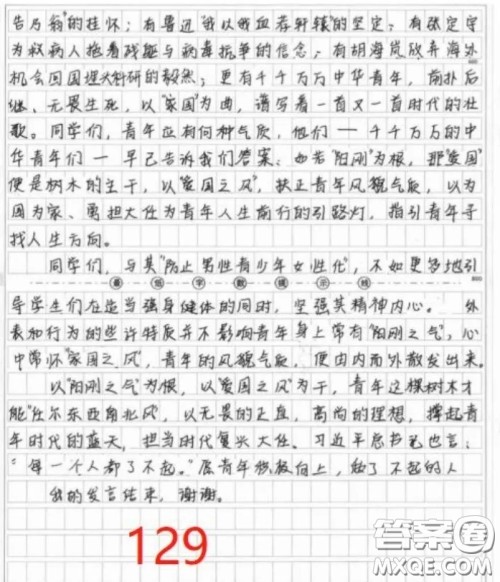 告乃翁”的挂怀；有鲁迅“我以我血荐轩辕”的坚定；有张定宇
为救病人拖着残躯与病毒抗争的信念；有胡海岚放弃海外
机会回国埋头科研的毅然；更有千千万万中华青年，前扑后
继、无畏生死，以“家国”为曲，谱写着一首又一首时代的壮
歌。同学们，青年应有何种气质，他们——千千万万的中
华青年们——早已告诉我们答案：如若“阳刚”为根，那“爱国”
便是树木的主干，以“爱国之风”，扶正青年风貌气质，以为
国为家、勇担大任为青年人生前行的引路灯，指引青年寻
找人生方向。
同学们，与其“防止男性青少年女性化”，不如更多地引
导学生们在适当强身健体的同时，坚强其精神内心。外
表和行为的些许特质并不影响青年身上常有“阳刚之气”，心
中常怀“家国之风”，青年的风貌气质，便由内而外散发出来。
以“阳刚之气”为根，以“爱国之风”为干，青年这棵树木才
能“任尔东西南北风”，以无畏的正直，高尚的理想，撑起青
年时代的蓝天，担当时代复兴大任。习近平总书记也言：
“每一个人都了不起。”愿青年积极向上，做了不起的人
我的发言结束，谢谢。
129
答案圈
MXQE.COM